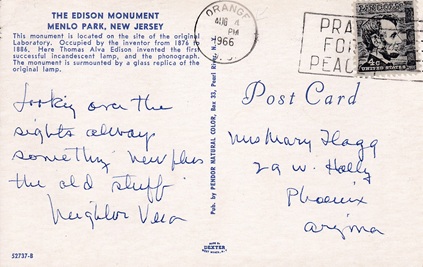 THE EDISON MONUMENT
MENLO PARK, NEW JERSEY
This monument is located on the site of the original
Laboratory. Occupied by the inventor from 1876 to
1886, Here Thomas Alva Edison invented the first
successful incandescent lamp, and the phonograph.
The monument is surmounted by a glass replica of the
original lamp.
Looking over the
sights always
something new plus
the old stuff
Neighbor Vera
52737-B
Pub. by PENDOR NATURAL COLOR, Box 33, Pearl River, N.
DEXTER
ORANGE
AUG 4
PM
1966
PRA
FOR
PEACE
4c
UNITED STATES
Post Card
Mrs Mary Flagg
29 w. Holly
Phoenix
Arizona